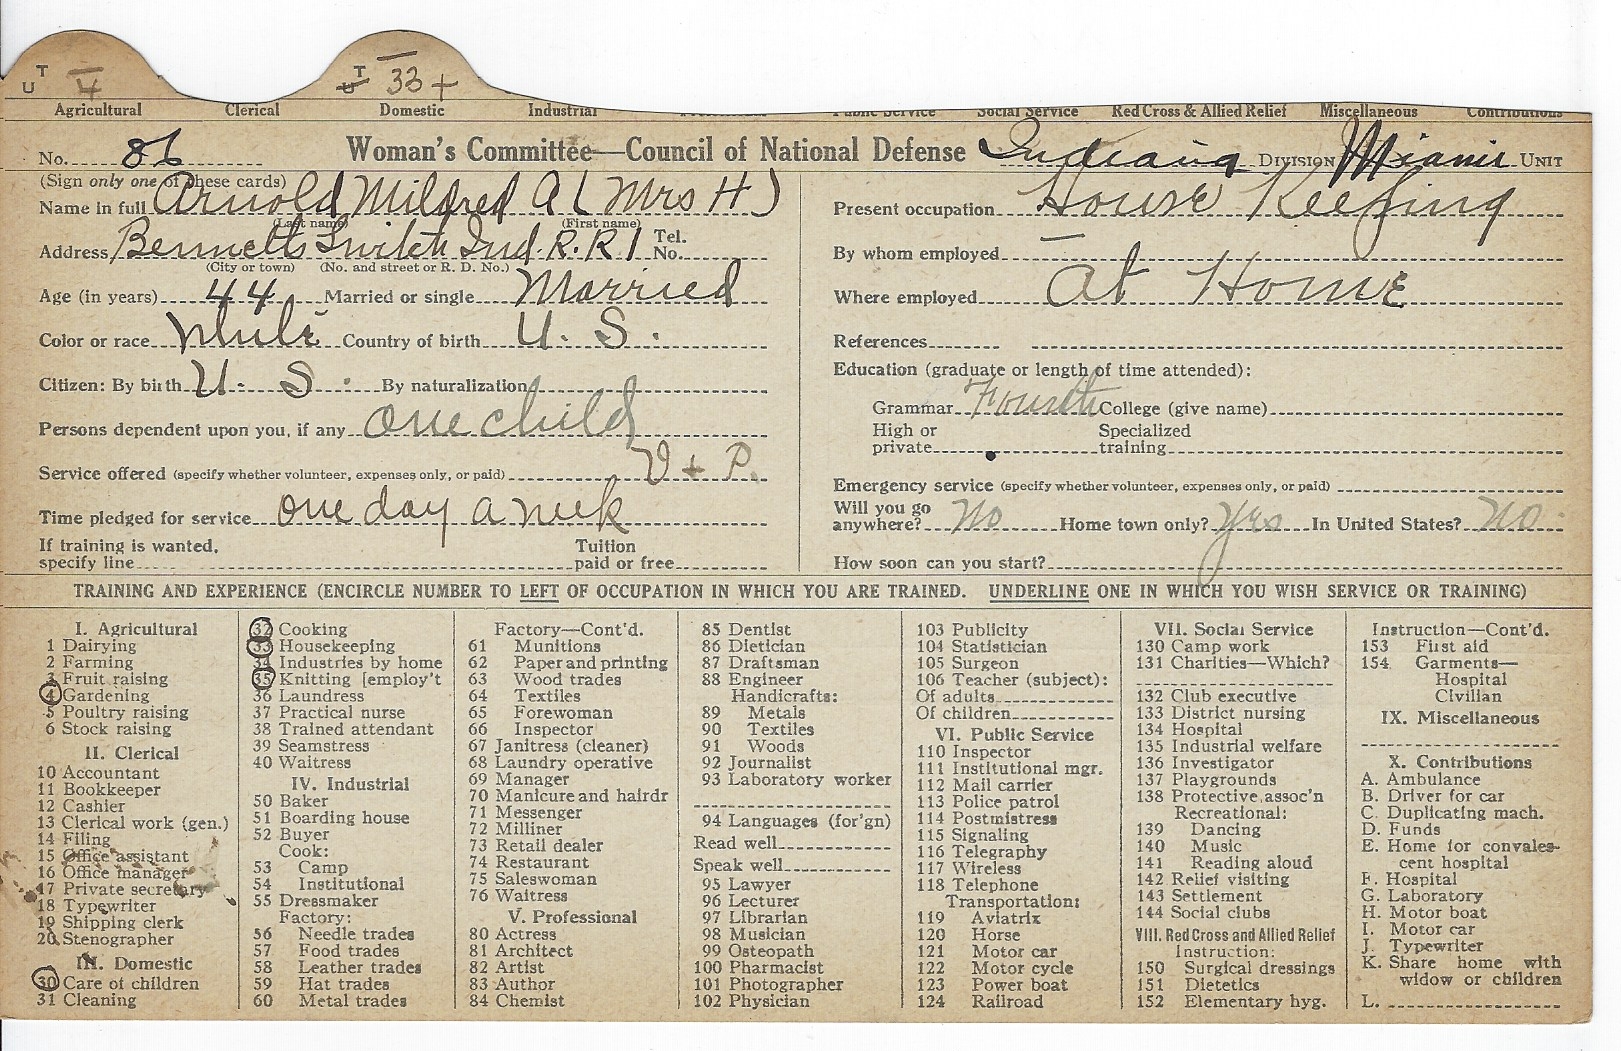 U T 4
U T 33 +
Agricultural Clerical Domestic Industrial Public Service Social Service Red Cross & Allied Relief Miscellaneous Contributions
No. 86 Woman's Committee—Council of National Defense Indiana DIVISION Miami UNIT
(Sign only one of these cards)
Name in full Arnold Mildred A (Mrs H)
(Last name) (First name)
Address Bennetts Switch Ind. R. R 1 Tel. No.
(City or town) (No. and street or R. D. No.)
Age (in years) 44 Married or single Married
Color or race White Country of birth U. S.
Citizen: By birth U. S. By naturalization
Persons dependent upon you, if any one child
Service offered (specify whether volunteer, expenses only, or paid) V + P.
Time pledged for service one day a week
If training is wanted, specify line Tuition paid or free
Present occupation House Keeping
By whom employed —
Where employed At Home
References
Education (graduate or length of time attended):
Grammar Fourth College (give name)
High or private Specialized training
Emergency service (specify whether volunteer, expenses only, or paid)
Will you go anywhere? No Home town only? Yes In United States? No.
How soon can you start?
TRAINING AND EXPERIENCE (ENCIRCLE NUMBER TO LEFT OF OCCUPATION IN WHICH YOU ARE TRAINED. UNDERLINE ONE IN WHICH YOU WISH SERVICE OR TRAINING)
I. Agricultural
1 Dairying
2 Farming
3 Fruit raising
4 Gardening
5 Poultry raising
6 Stock raising
II. Clerical
10 Accountant
11 Bookkeeper
12 Cashier
13 Clerical work (gen.)
14 Filing
15 Office assistant
16 Office manager
17 Private secretary
18 Typewriter
19 Shipping clerk
20 Stenographer
III. Domestic
30 Care of children
31 Cleaning
32 Cooking
33 Housekeeping
34 Industries by home
35 Knitting [employ't
36 Laundress
37 Practical nurse
38 Trained attendant
39 Seamstress
40 Waitress
IV. Industrial
50 Baker
51 Boarding house
52 Buyer
Cook:
53 Camp
54 Institutional
55 Dressmaker
Factory:
56 Needle trades
57 Food trades
58 Leather trades
59 Hat trades
60 Metal trades
Factory—Cont'd.
61 Munitions
62 Paper and printing
63 Wood trades
64 Textiles
65 Forewoman
66 Inspector
67 Janitress (cleaner)
68 Laundry operative
69 Manager
70 Manicure and hairdr
71 Messenger
72 Milliner
73 Retail dealer
74 Restaurant
75 Saleswoman
76 Waitress
V. Professional
80 Actress
81 Architect
82 Artist
83 Author
84 Chemist
85 Dentist
86 Dietician
87 Draftsman
88 Engineer
Handicrafts:
89 Metals
90 Textiles
91 Woods
92 Journalist
93 Laboratory worker
94 Languages (for'gn)
Read well
Speak well
95 Lawyer
96 Lecturer
97 Librarian
98 Musician
99 Osteopath
100 Pharmacist
101 Photographer
102 Physician
103 Publicity
104 Statistician
105 Surgeon
106 Teacher (subject):
Of adults
Of children
VI. Public Service
110 Inspector
111 Institutional mgr.
112 Mail carrier
113 Police patrol
114 Postmistress
115 Signaling
116 Telegraphy
117 Wireless
118 Telephone
Transportation:
119 Aviatrix
120 Horse
121 Motor car
122 Motor cycle
123 Power boat
124 Railroad
VII. Social Service
130 Camp work
131 Charities—Which?
132 Club executive
133 District nursing
134 Hospital
135 Industrial welfare
136 Investigator
137 Playgrounds
138 Protective assoc'n
Recreational:
139 Dancing
140 Music
141 Reading aloud
142 Relief visiting
143 Settlement
144 Social clubs
VIII. Red Cross and Allied Relief
Instruction:
150 Surgical dressings
151 Dietetics
152 Elementary hyg.
Instruction—Cont'd.
153 First aid
154 Garments—
Hospital
Civilian
IX. Miscellaneous
X. Contributions
A. Ambulance
B. Driver for car
C. Duplicating mach.
D. Funds
E. Home for convales-
cent hospital
F. Hospital
G. Laboratory
H. Motor boat
I. Motor car
J. Typewriter
K. Share home with
widow or children
L.